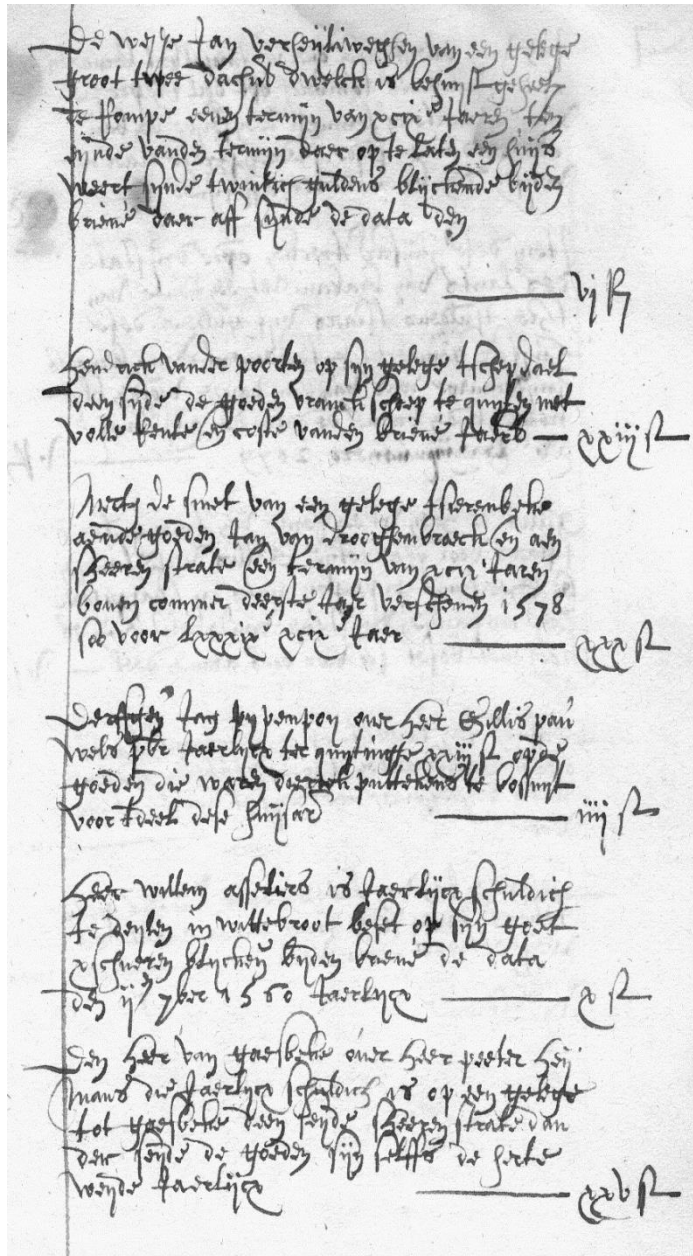 De wese Jan verheijliweghen van een gelege
groot twee dachw dwelck is behuijst geheeten
te pompe eenen termijn van xcix Jaeren ten
eijnde vanden termijn daer op te laten een huijs
weert sijnde twintich guldens blijckende bijden
brieve daer aff sijnde de data den
vj R
Hendrick vander poorten op sijn gelege tschepdael
deen sijde de goeden vranck scheep te quijten met
volle rente en coste vanden brieve Jaers xxiiij st
Merten de smet van een gelege tsierenbeke
aende goeden Jan van droogenbroeck en aen
sheeren strate een termijn van xcix Jaren
boven commer deerste Jaer verschenen 1578
soe voor lxxxix xcix Jaer xxx st
Derfgen Jan pijpenpoij over Heer Gillis pau
wels pbr Jaerlijcx ter quijtinge xxiiij st opde
goeden die waren dierick puttekens te bossuijt
voor tdeel dese huijsar iiij st
Heer willem asseliers is Jaerlijcx schuldich
te deijlen in wittebroot beset op sijn goet
xschueren blijckende bijden brieve de data
den ij 7ber 1560 Jaerlijcx x st
Den Heer van gaesbeke over Heer peeter Heij
mans die Jaerlijcx schuldich is op een gelege
tot gaesbeke deen seijde sheeren strate dan
der seijde de goeden sijn selffs de herte
weijde Jaerlijcx xxv st